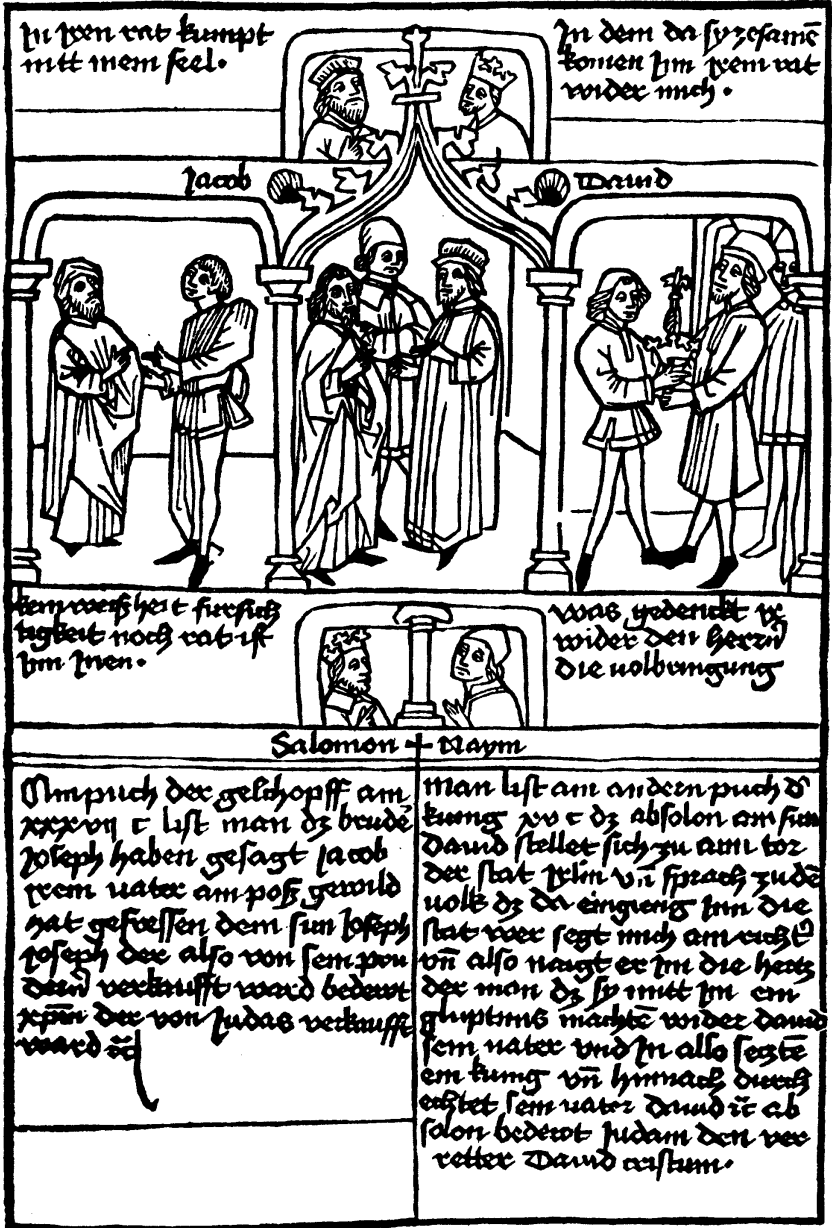 In iren rat kumpt
nitt mein seel.
In dem da sy zesamē
komen Inn irem rat
wider mich.
Jacob
David
kein weisßheit fursich
tigkeit noch rat ist
Inn Inen.
was gedenckt ir
wider den herrn
die volbringung
Salomon Naym
Am puch der geschopff am
xxxvij c list man dz brudē
Joseph haben gesagt Jacob
irem vater am poß gewild
hat gefressen dem sun Joseph
Joseph der also von sein pru
dern verkaufft ward bedewt
xp̄m der von Judas verkaufft
ward ꝛc
man list am andern puch d'
kunig xv c dz absolon am sun
David stellet sich zu aim tor
der stat irlm vn̄ sprach zu dē
volk dz da eingieng Inn die
stat wer setzt mich am richt'
vn̄ also naigt er im die hertz
der man dz sy mitt Im ein
gluptnus machtē wider david
sein vater vnd In also setztē
ein kunig vn̄ hinnach durch
echtet sein vater david ꝛc ab
solon bedewt Judam den ver
retter David cristum.